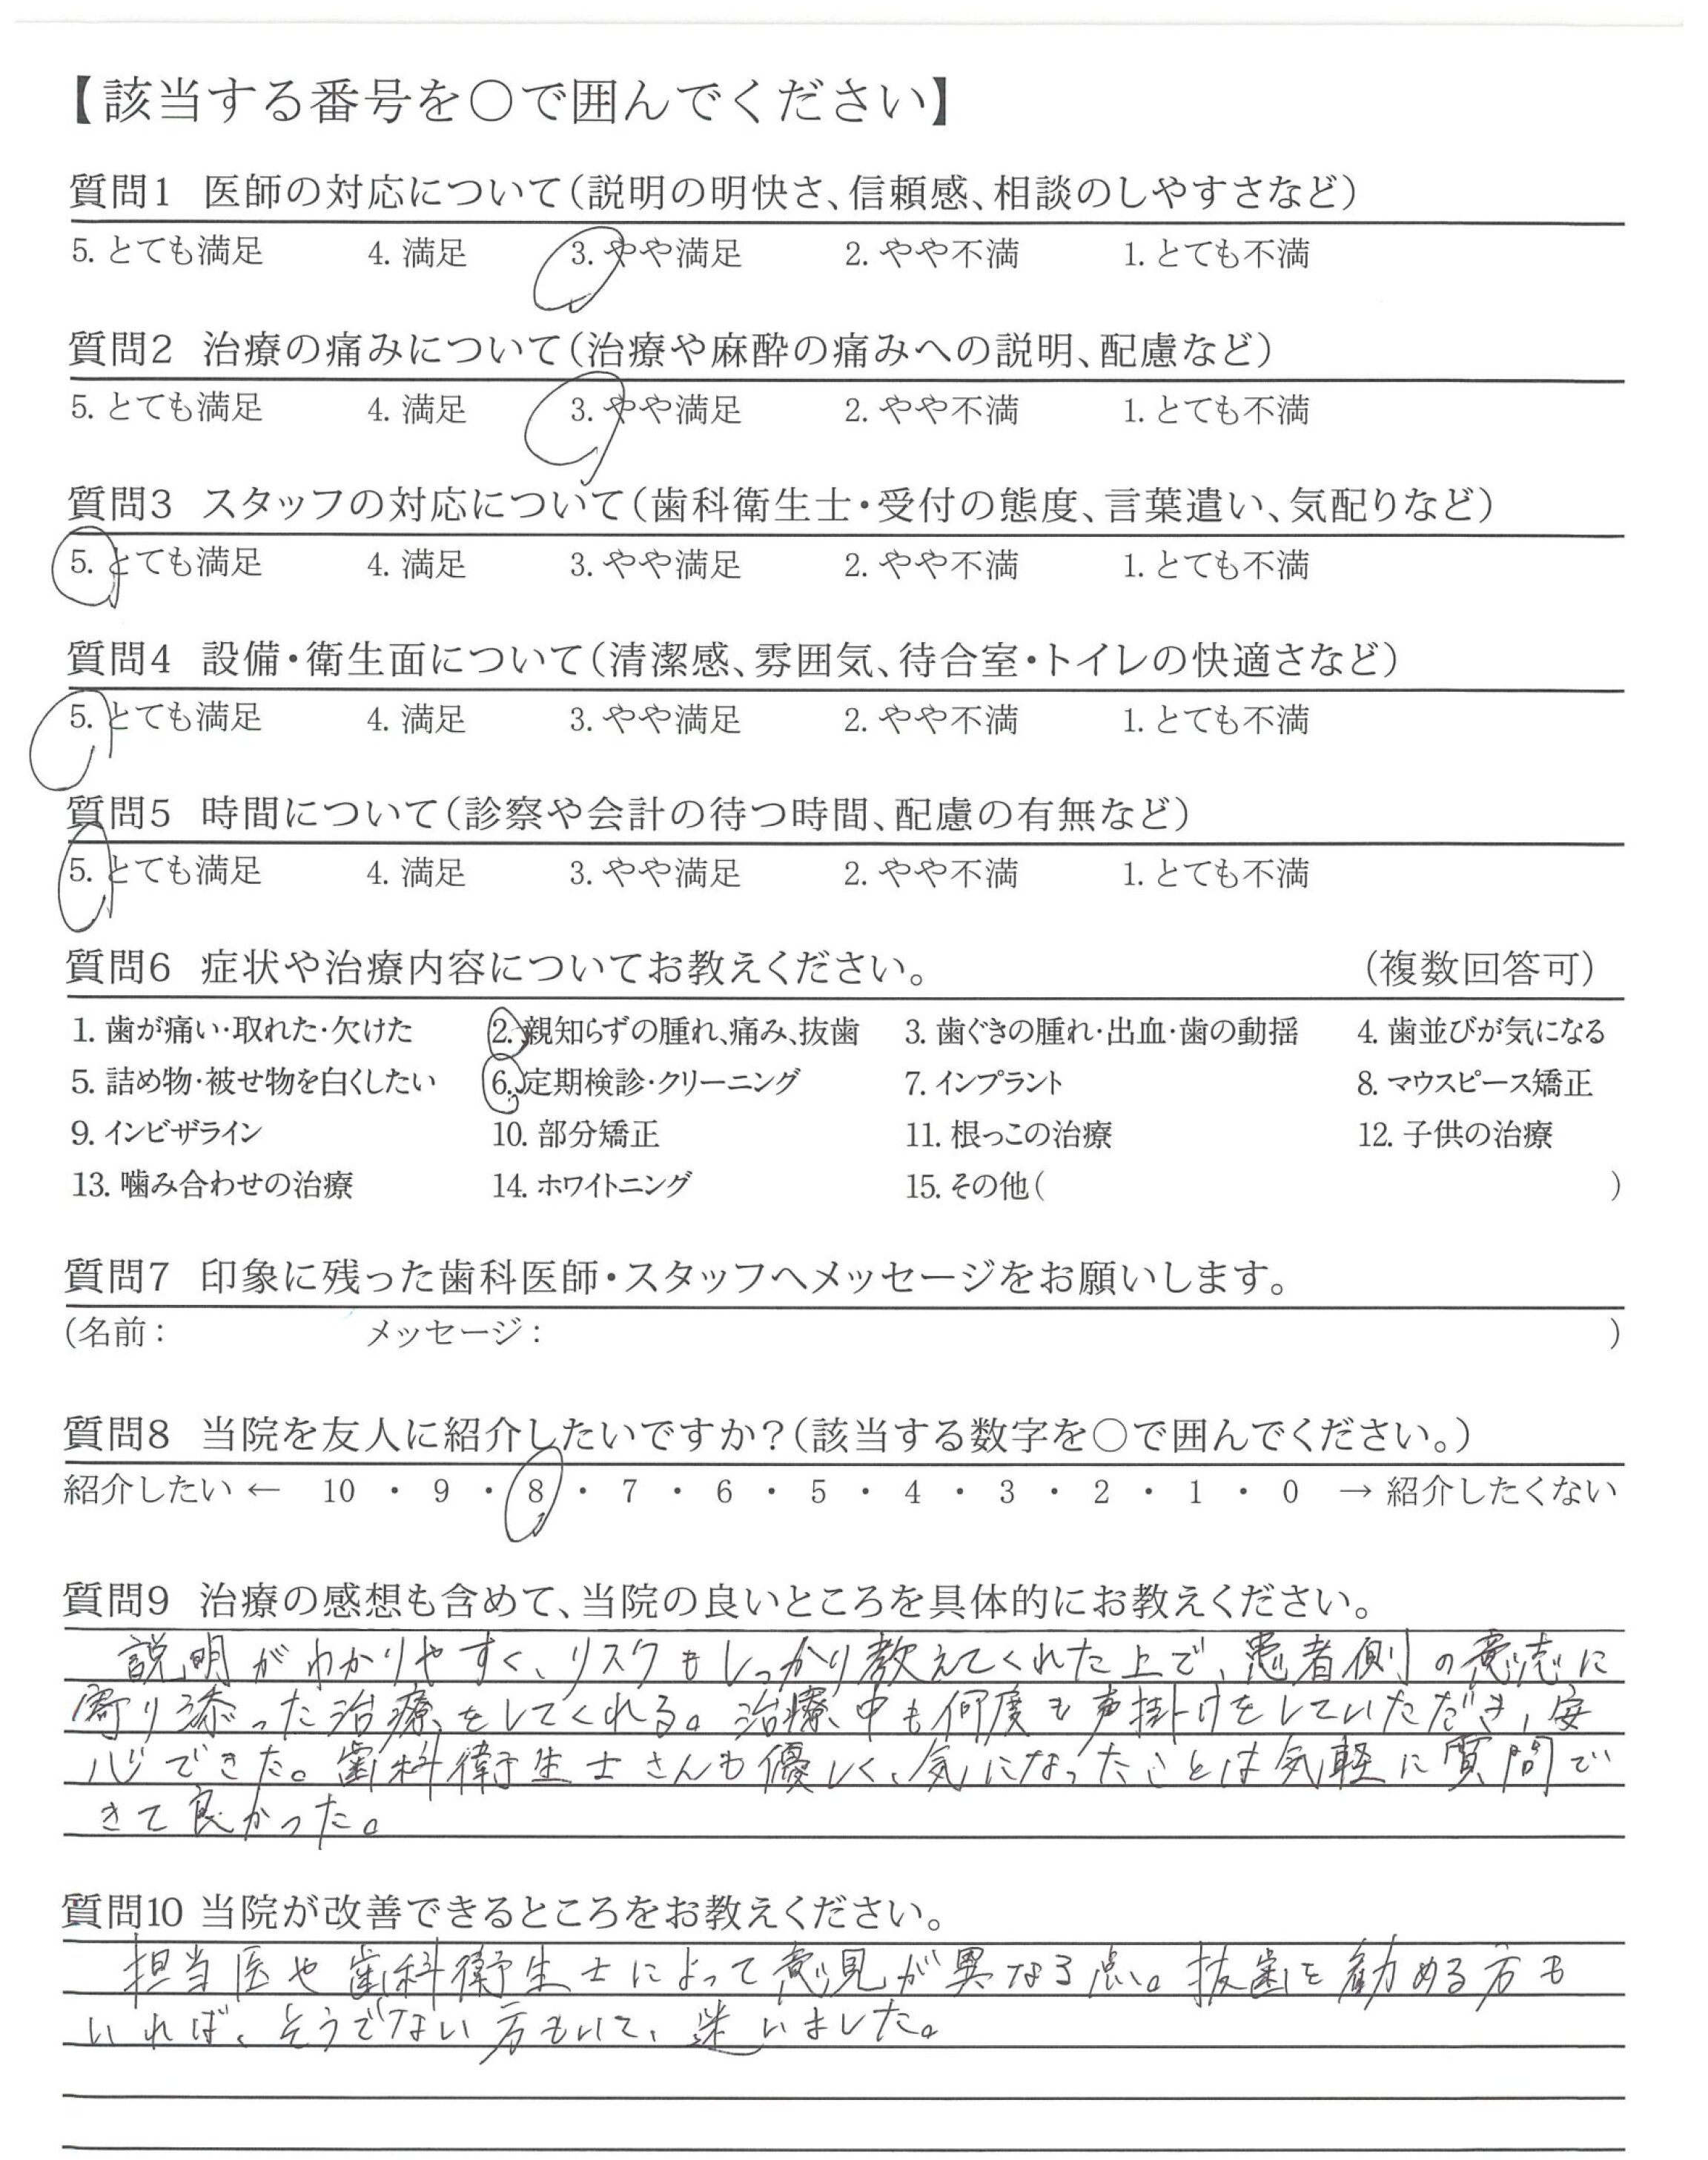 【該当する番号を〇で囲んでください】
質問1 医師の対応について(説明の明快さ、信頼感、相談のしやすさなど)
5. とても満足 4. 満足 3. やや満足 2. やや不満 1. とても不満
質問2 治療の痛みについて(治療や麻酔の痛みへの説明、配慮など)
5. とても満足 4. 満足 3. やや満足 2. やや不満 1. とても不満
質問3 スタッフの対応について(歯科衛生士・受付の態度、言葉遣い、気配りなど)
5. とても満足 4. 満足 3. やや満足 2. やや不満 1. とても不満
質問4 設備・衛生面について(清潔感、雰囲気、待合室・トイレの快適さなど)
5. とても満足 4. 満足 3. やや満足 2. やや不満 1. とても不満
質問5 時間について(診察や会計の待つ時間、配慮の有無など)
5. とても満足 4. 満足 3. やや満足 2. やや不満 1. とても不満
質問6 症状や治療内容についてお教えください。 (複数回答可)
1. 歯が痛い・取れた・欠けた 2. 親知らずの腫れ、痛み、抜歯 3. 歯ぐきの腫れ・出血・歯の動揺 4. 歯並びが気になる
5. 詰め物・被せ物を白くしたい 6. 定期検診・クリーニング 7. インプラント 8. マウスピース矯正
9. インビザライン 10. 部分矯正 11. 根っこの治療 12. 子供の治療
13. 噛み合わせの治療 14. ホワイトニング 15. その他( )
質問7 印象に残った歯科医師・スタッフへメッセージをお願いします。
(名前: メッセージ: )
質問8 当院を友人に紹介したいですか?(該当する数字を〇で囲んでください。)
紹介したい ← 10 ・ 9 ・ 8 ・ 7 ・ 6 ・ 5 ・ 4 ・ 3 ・ 2 ・ 1 ・ 0 → 紹介したくない
質問9 治療の感想も含めて、当院の良いところを具体的にお教えください。
説明がわかりやすく、リスクもしっかり教えてくれた上で、患者側の意志に
寄り添った治療をしてくれる。治療中も何度も声掛けをしていただき、安
心できた。歯科衛生士さんも優しく、気になったことは気軽に質問で
きて良かった。
質問10 当院が改善できるところをお教えください。
担当医や歯科衛生士によって意見が異なる点。抜歯を勧める方も
いれば、そうでない方もいて、迷いました。